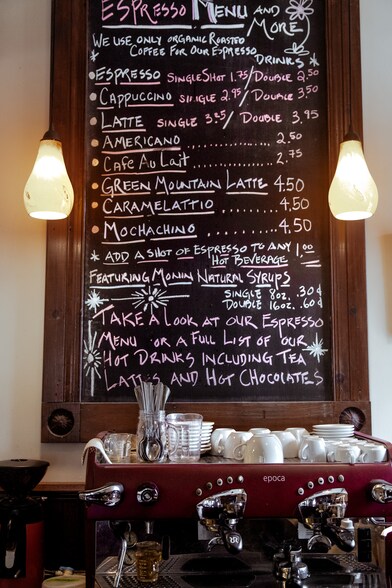 ESPRESSO MENU AND
MORE
WE USE ONLY ORGANIC ROASTED
COFFEE FOR OUR ESPRESSO
DRINKS
ESPRESSO SINGLE SHOT 1.75/DOUBLE 2.50
CAPPUCCINO SINGLE 2.95/DOUBLE 3.50
LATTE SINGLE 3.25/DOUBLE 3.95
AMERICANO ............... 2.50
CAFE AU LAIT ............... 2.75
GREEN MOUNTAIN LATTE 4.50
CARAMELATTIO ......... 4.50
MOCHACHINO ......... 4.50
* ADD A SHOT OF ESPRESSO TO ANY 1.00
HOT BEVERAGE
FEATURING MONIN NATURAL SYRUPS
SINGLE 8oz. .30¢
DOUBLE 16oz. .60¢
TAKE A LOOK AT OUR ESPRESSO
MENU FOR A FULL LIST OF OUR
HOT DRINKS INCLUDING TEA
LATTES AND HOT CHOCOLATES
epoca